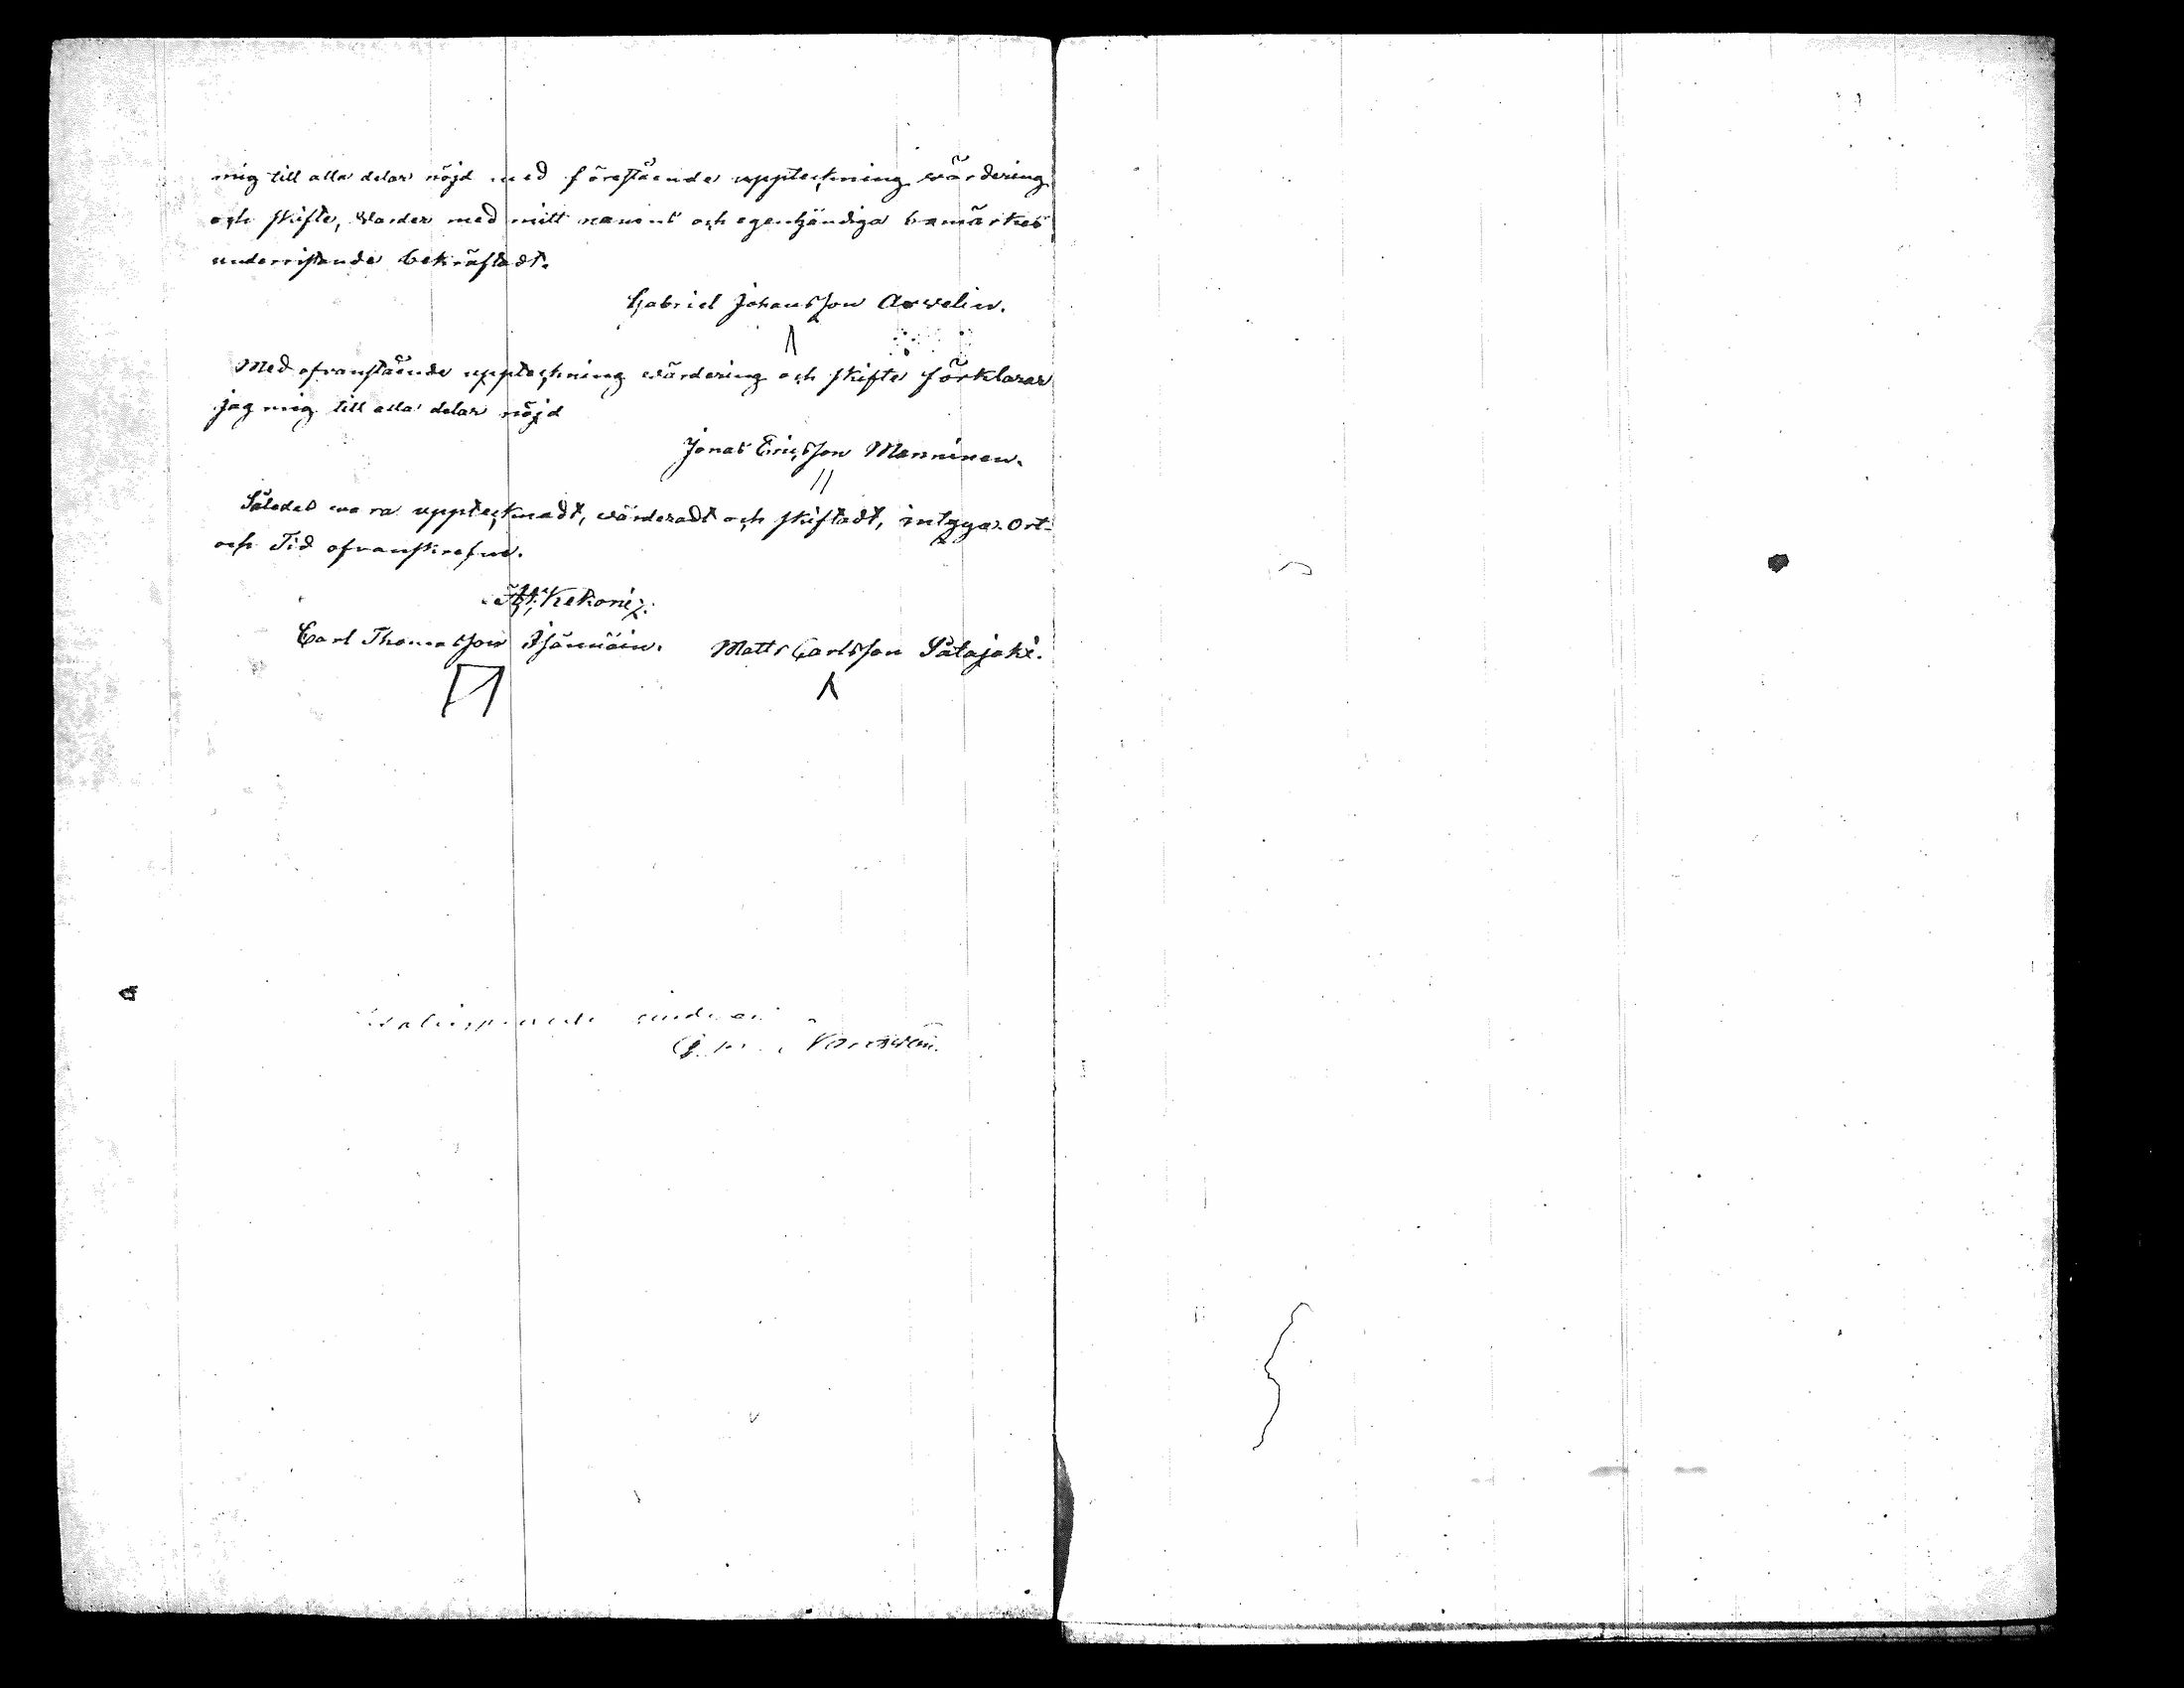 mig till alla delar nöjd med förestående uppteckning wärdering
och skifte, warder med mitt namns och egenhändiga bomärkes
underristande bekräftadt.
Gabriel Johansson Aswelin.
Med ofvanstående uppteckning wärdering och skifte förklarar
jag mig till alla delar nöjd
Jonas Ericsson Manninen.
Således wara upptecknadt, wärderadt och skiftadt, intygar Ort-
och Tid ofvanskrefne.
Kekoni
Carl Thomasson Matts Carlsson Salajoki.